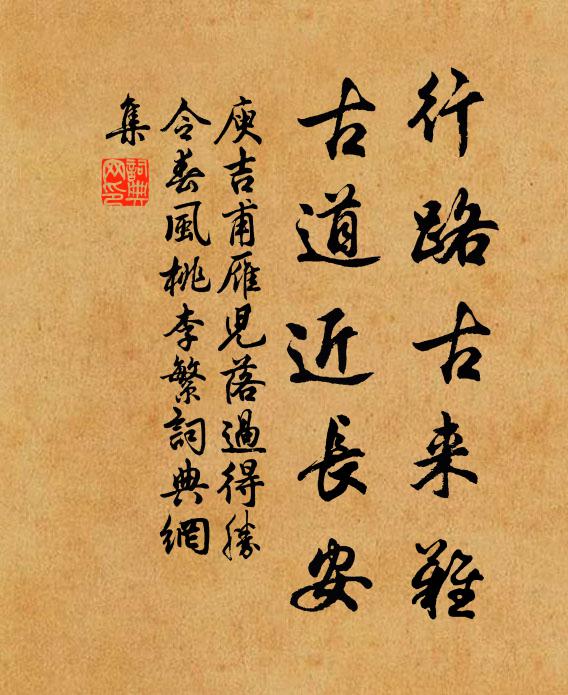 行路古来難
古道近長安
庾吉甫雁児落過得勝
令春風桃李繁詞典網
集
詞典
网印